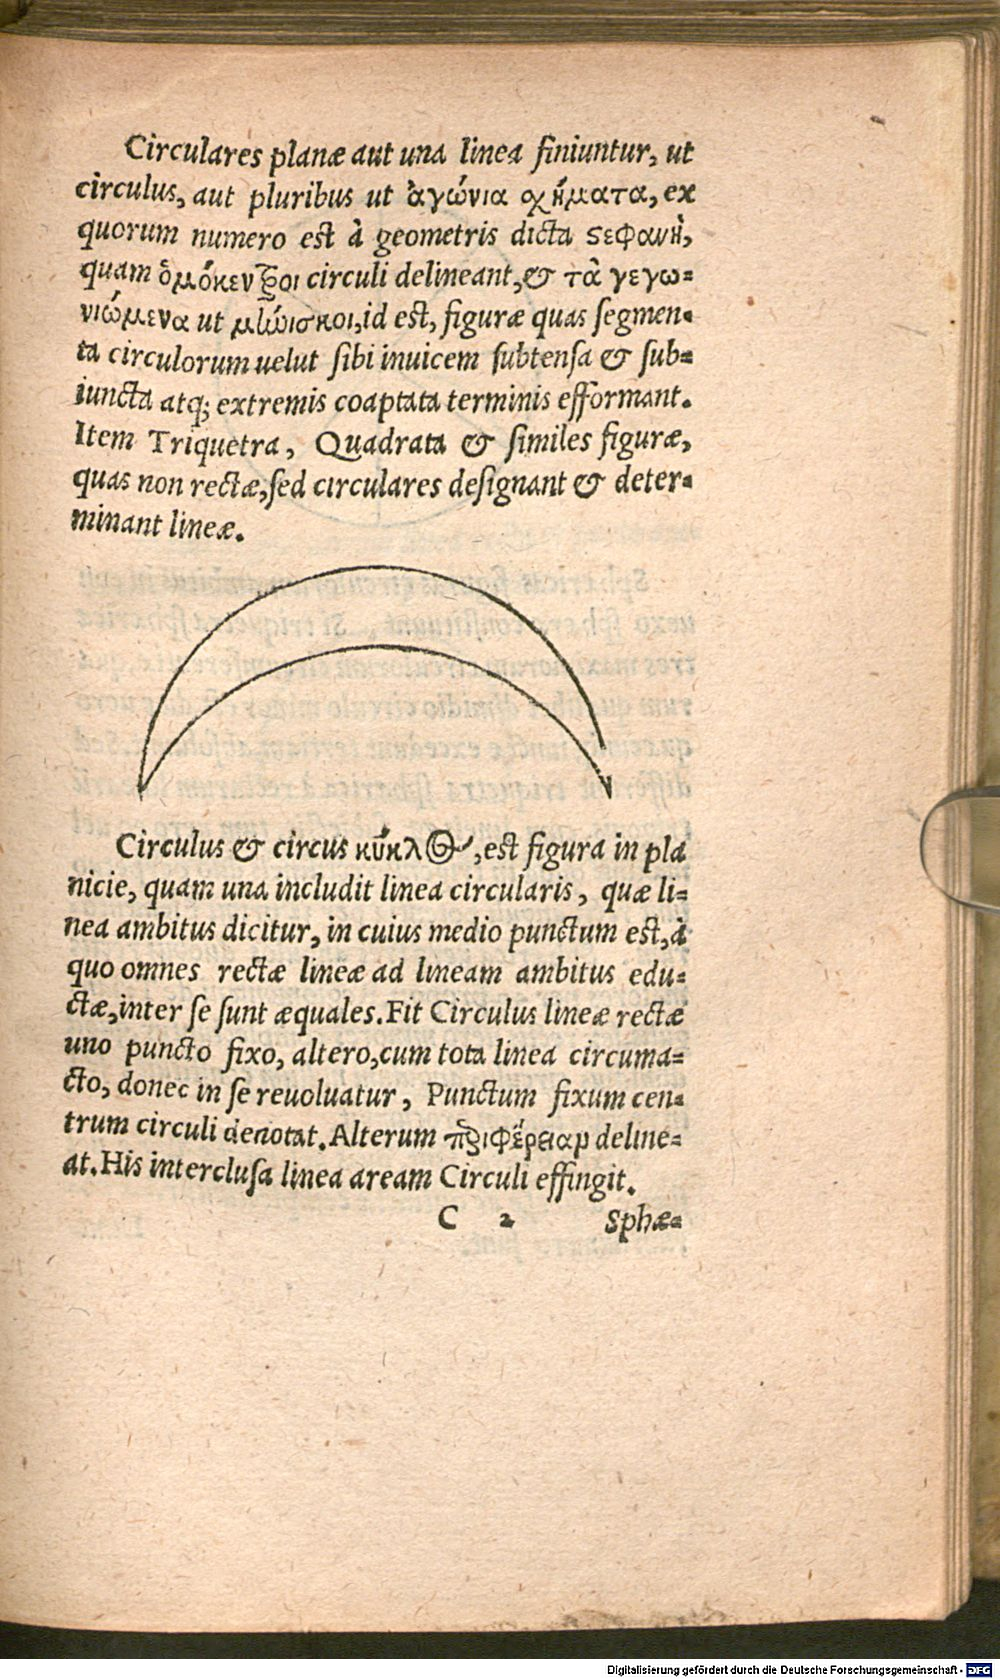 Circulares planæ aut una linea finiuntur, ut
circulus, aut pluribus ut ἀγώνια σχήματα, ex
quorum numero est à geometris dicta ϛεφανὴ,
quam ὁμόκεντροι circuli delineant, & τὰ γεγω-
νιώμενα ut μωύισκοι, id est, figuræ quas segmen-
ta circulorum uelut sibi inuicem subtensa & sub-
iuncta atq; extremis coaptata terminis efformant.
Item Triquetra, Quadrata & similes figuræ,
quas non rectæ, sed circulares designant & deter-
minant lineæ.
Circulus & circus κύκλος, est figura in pla
nicie, quam una includit linea circularis, quæ li-
nea ambitus dicitur, in cuius medio punctum est, à
quo omnes rectæ lineæ ad lineam ambitus edu-
ctæ, inter se sunt æquales. Fit Circulus lineæ rectæ
uno puncto fixo, altero, cum tota linea circuma-
cto, donec in se reuoluatur, Punctum fixum cen-
trum circuli denotat. Alterum περιφέρειαν deline-
at. His interclusa linea aream Circuli effingit.
C 2 Sphæ-
Digitalisierung gefördert durch die Deutsche Forschungsgemeinschaft - DFG